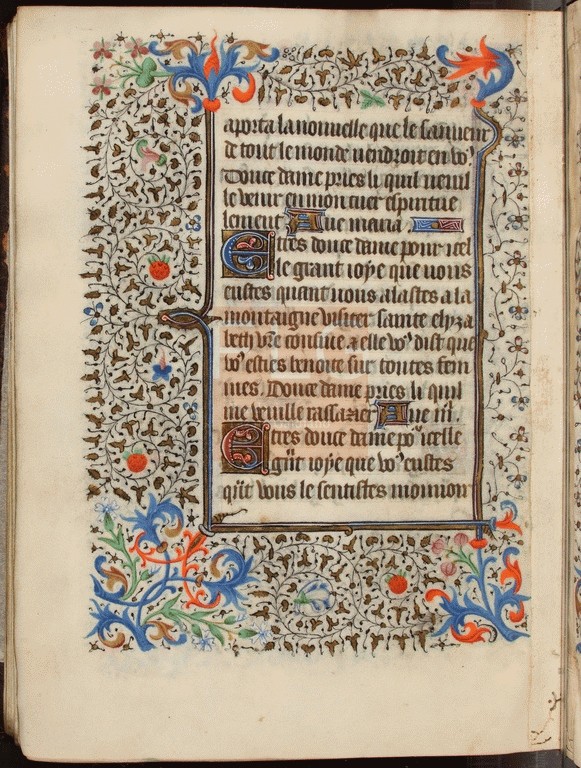 aporta la nouuelle que le sauueur
de tout le monde uendroit en voꝰ
Douce dame pries li quil ueuil
le venir en mon cuer espiritue
lement Aue maria
E tres douce dame pour icel
le grant ioye que uous
eustes quant uous alastes a la
montaigne visiter sainte elyza
beth vr̃e cousine ⁊ elle voꝰ dist que
voꝰ esties benoite sur toutes fem
mes. Douce dame pries li quil
me veuille rassazier Aue m̃.
E tres douce dame poꝰ icelle
gñt ioye que voꝰ eustes
qñt vous le sentistes mouuoir